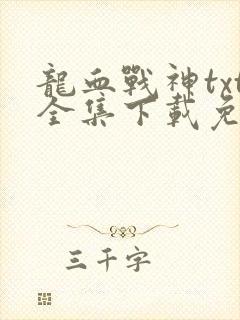 龍血戰神txt
全集下載免
三千字